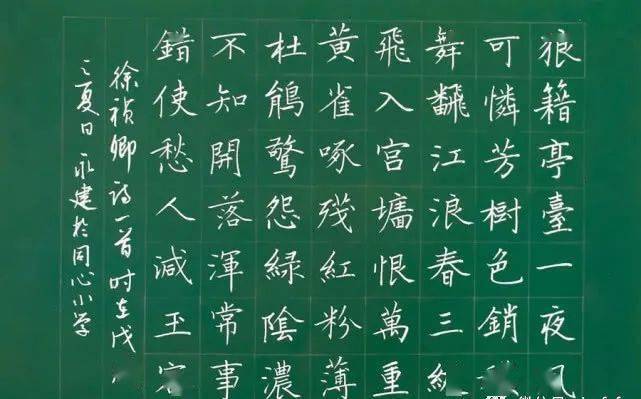 狼籍亭臺一夜風
可憐芳樹色銷
舞飜江浪春三
飛入宮墻恨萬重
黃雀啄殘紅粉薄
杜鵑驚怨綠陰濃
不知開落渾常事
錯使愁人減玉容
徐禎卿詩一首时在戊
夏日永建於同心小学